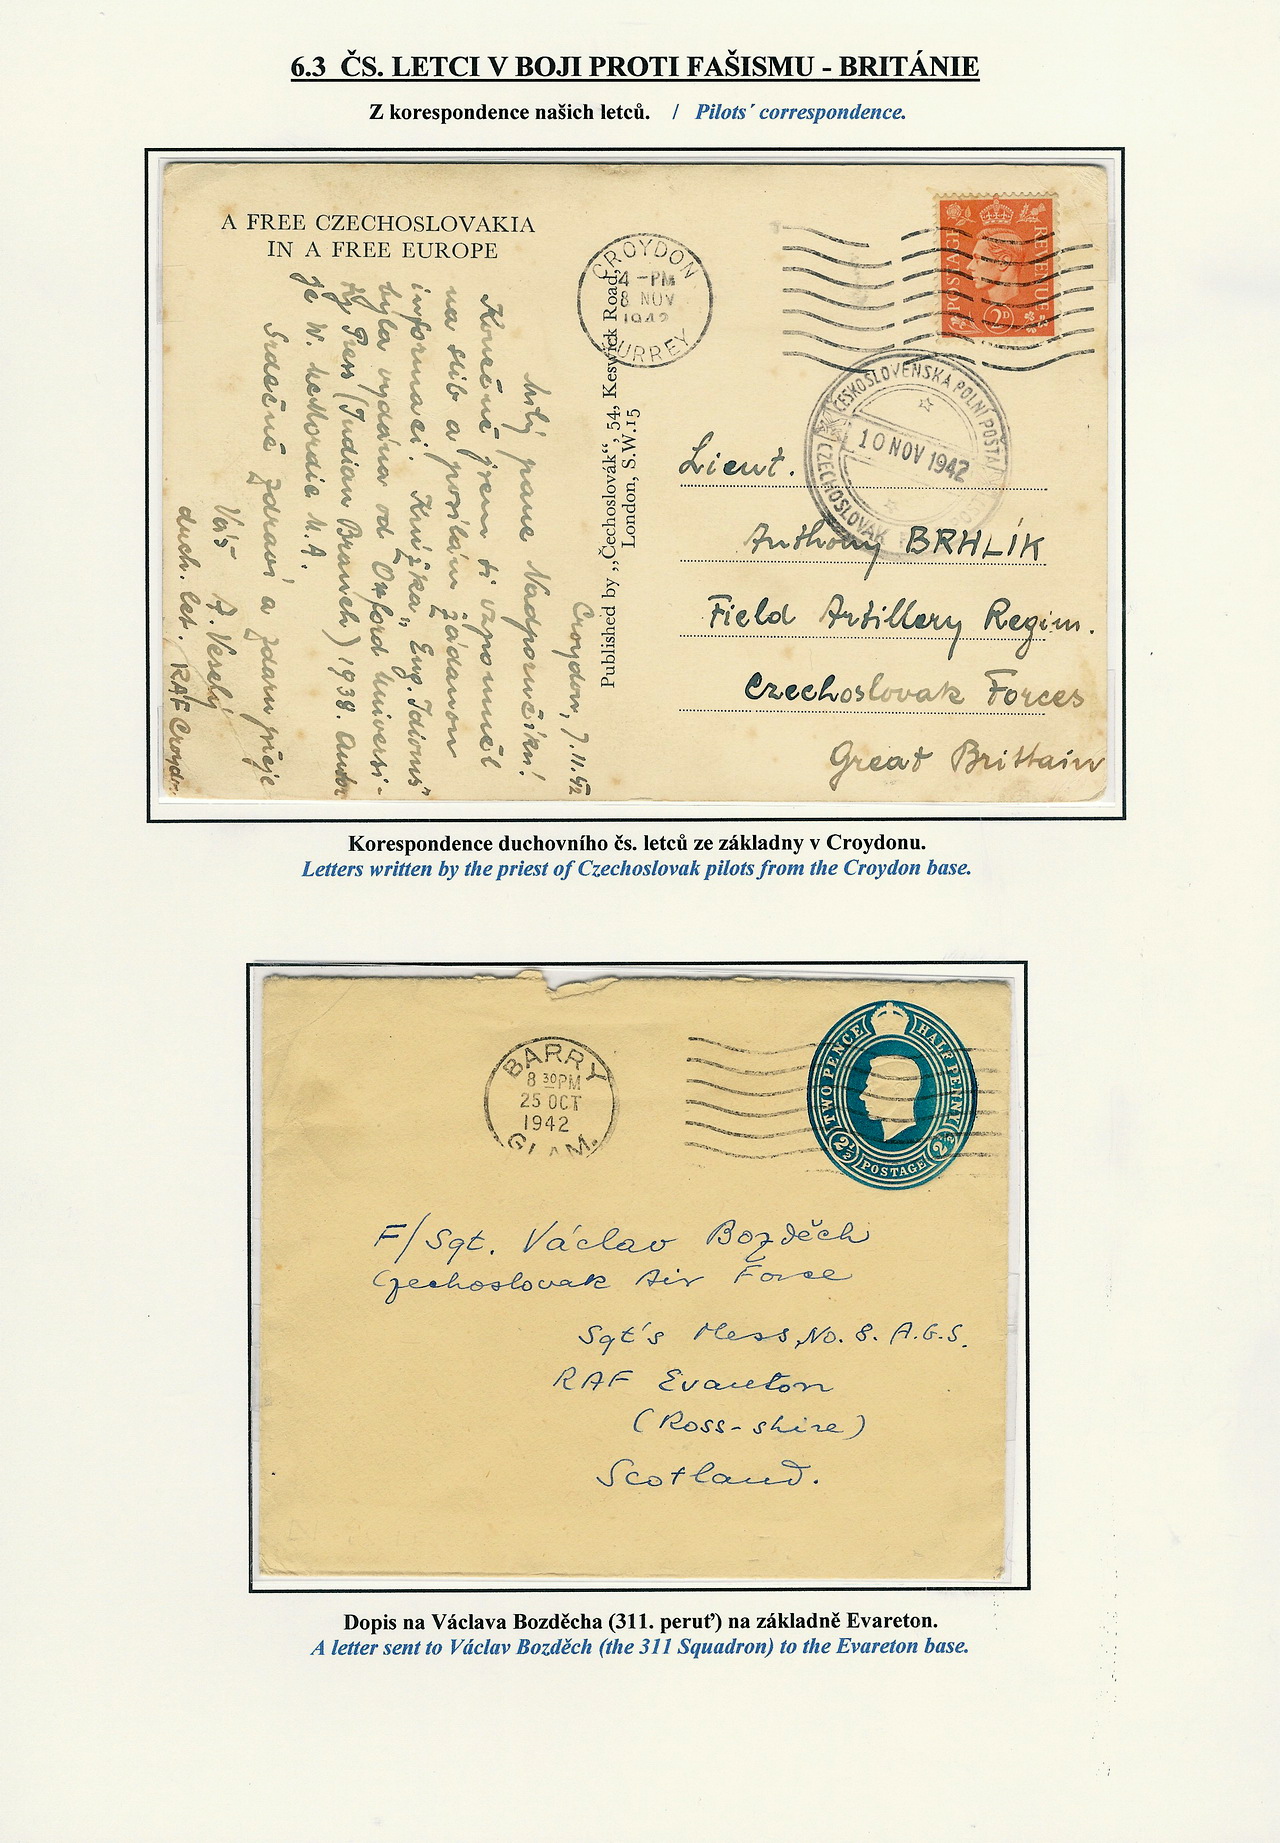 6.3 ČS. LETCI V BOJI PROTI FAŠISMU - BRITÁNIE
Z korespondence našich letců. / Pilots´ correspondence.
A FREE CZECHOSLOVAKIA
IN A FREE EUROPE
CROYDON
4 - PM
8 NOV
1942
SURREY
POSTAGE REVENUE
2D
ČESKOSLOVENSKÁ POLNÍ POŠTA
10 NOV 1942
CZECHOSLOVAK
Published by „Čechoslovák“, 54, Keswick Road,
London, S.W.15
Croydon, 7.11.42
Milý pane Nadporučíku!
Konečně jsem si vzpomněl
na slib a posílám žádanou
informaci. Knížka „Eng. Idioms"
byla vydána od Oxford Universi-
ty Press (Indian Branch) 1938. Autor
je W. McMordie M.A.
Srdečně zdraví a zdaru přeje
Váš J. Veselý
duch. let. RAF Croydon
Lieut.
Anthony BRHLÍK
Field Artillery Regim.
Czechoslovak Forces
Great Brittain
Korespondence duchovního čs. letců ze základny v Croydonu.
Letters written by the priest of Czechoslovak pilots from the Croydon base.
BARRY
8 30 PM
25 OCT
1942
GLAM.
TWO PENCE HALF PENNY
2½ POSTAGE 2½
F/Sgt. Václav Bozděch
Czechoslovak Air Force
Sgt's Mess, No. 8. A.G.S.
RAF Evanton
(Ross-shire)
Scotland.
Dopis na Václava Bozděcha (311. peruť) na základně Evareton.
A letter sent to Václav Bozděch (the 311 Squadron) to the Evareton base.